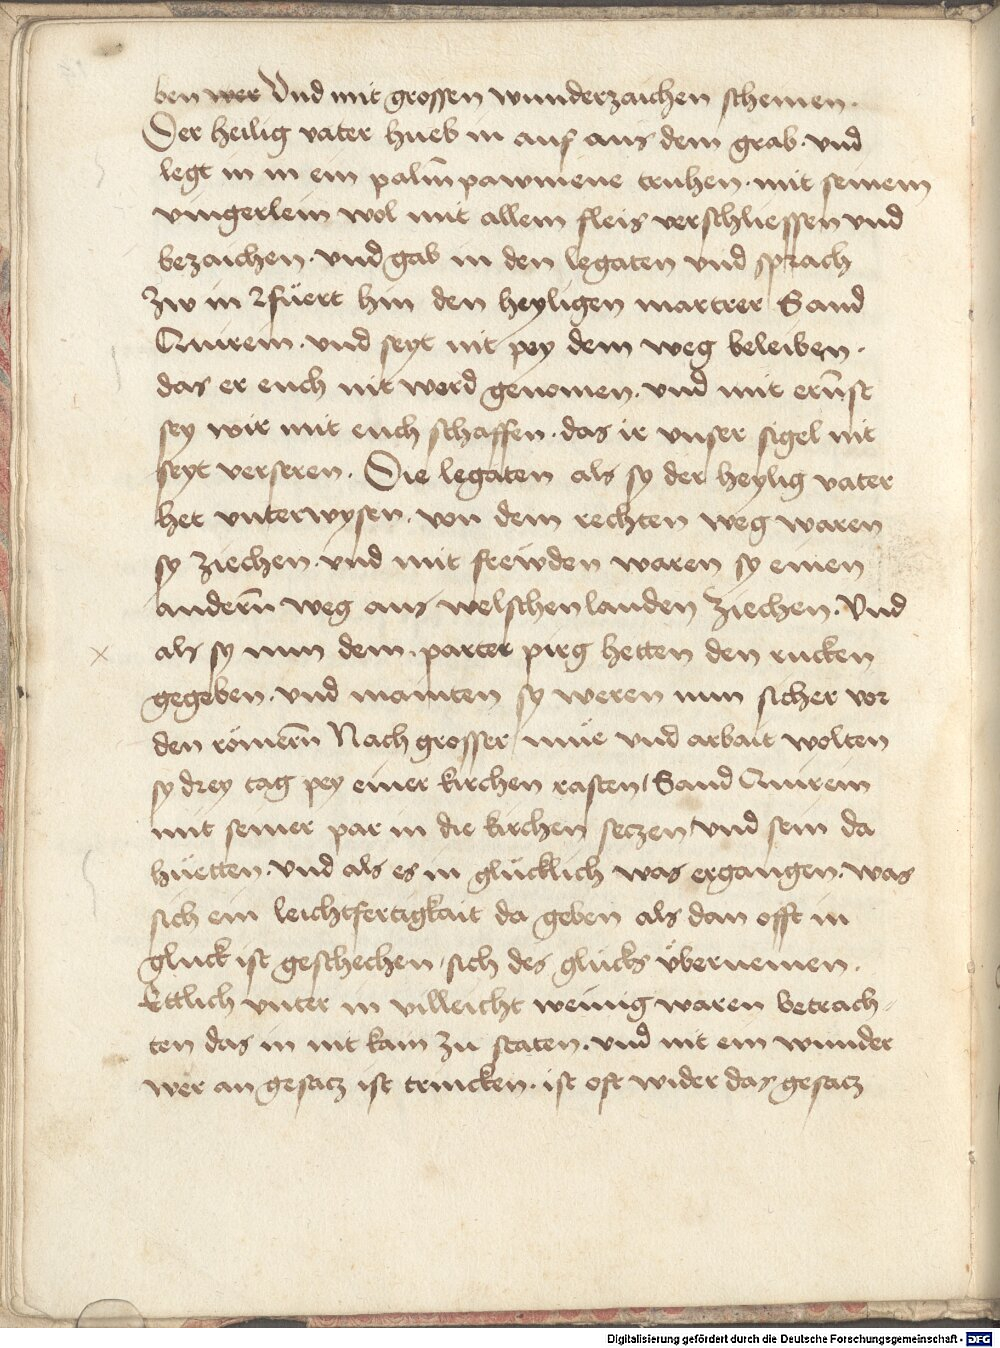 ben wer Vnd mit grossen wunderzaichen scheinen.
Der heilig vater hueb in auf aus dem grab. vnd
legt in in ein palm̄ pawmene truhen. mit seinem
vingerlein wol mit allem fleis verschliessen vnd
bezaichen. vnd gab in den legaten vnd sprach
zw in 2 füert hin den heyligen martrer Sand
Quirein. vnd seyt nit pey dem weg beleiben.
das er euch nit werd genomen. vnd mit ern̄st
sey wir mit euch schaffen. das ir vnser sigel nit
seyt verseren. Die legaten als sy der heylig vater
het vnterwysen. von dem rechten weg waren
sy ziechen. vnd mit frewden waren sy einen
andern̄ weg aus welschen landen ziechen. Vnd
als sy nun dem. parter pirg hetten den rucken
gegeben. vnd mainten sy weren nun sicher vor
den römern̄ Nach grosser müe vnd arbait wolten
sy drey tag pey einer kirchen rasten / Sand Quirein
mit seiner par in die kirchen seczen vnd sein da
hüetten. vnd als es in glücklich was ergangen. was
sich ein leichtfertigkait da geben als dan offt in
gluck ist geschechen / sich des glücks übernemen.
Ettlich vnter in villeicht weinig waren betrach-
ten das in nit kam zu staten. vnd nit ein wunder
wer an gesacz ist trincken. ist oft wider das gesacz
Digitalisierung gefördert durch die Deutsche Forschungsgemeinschaft - DFG